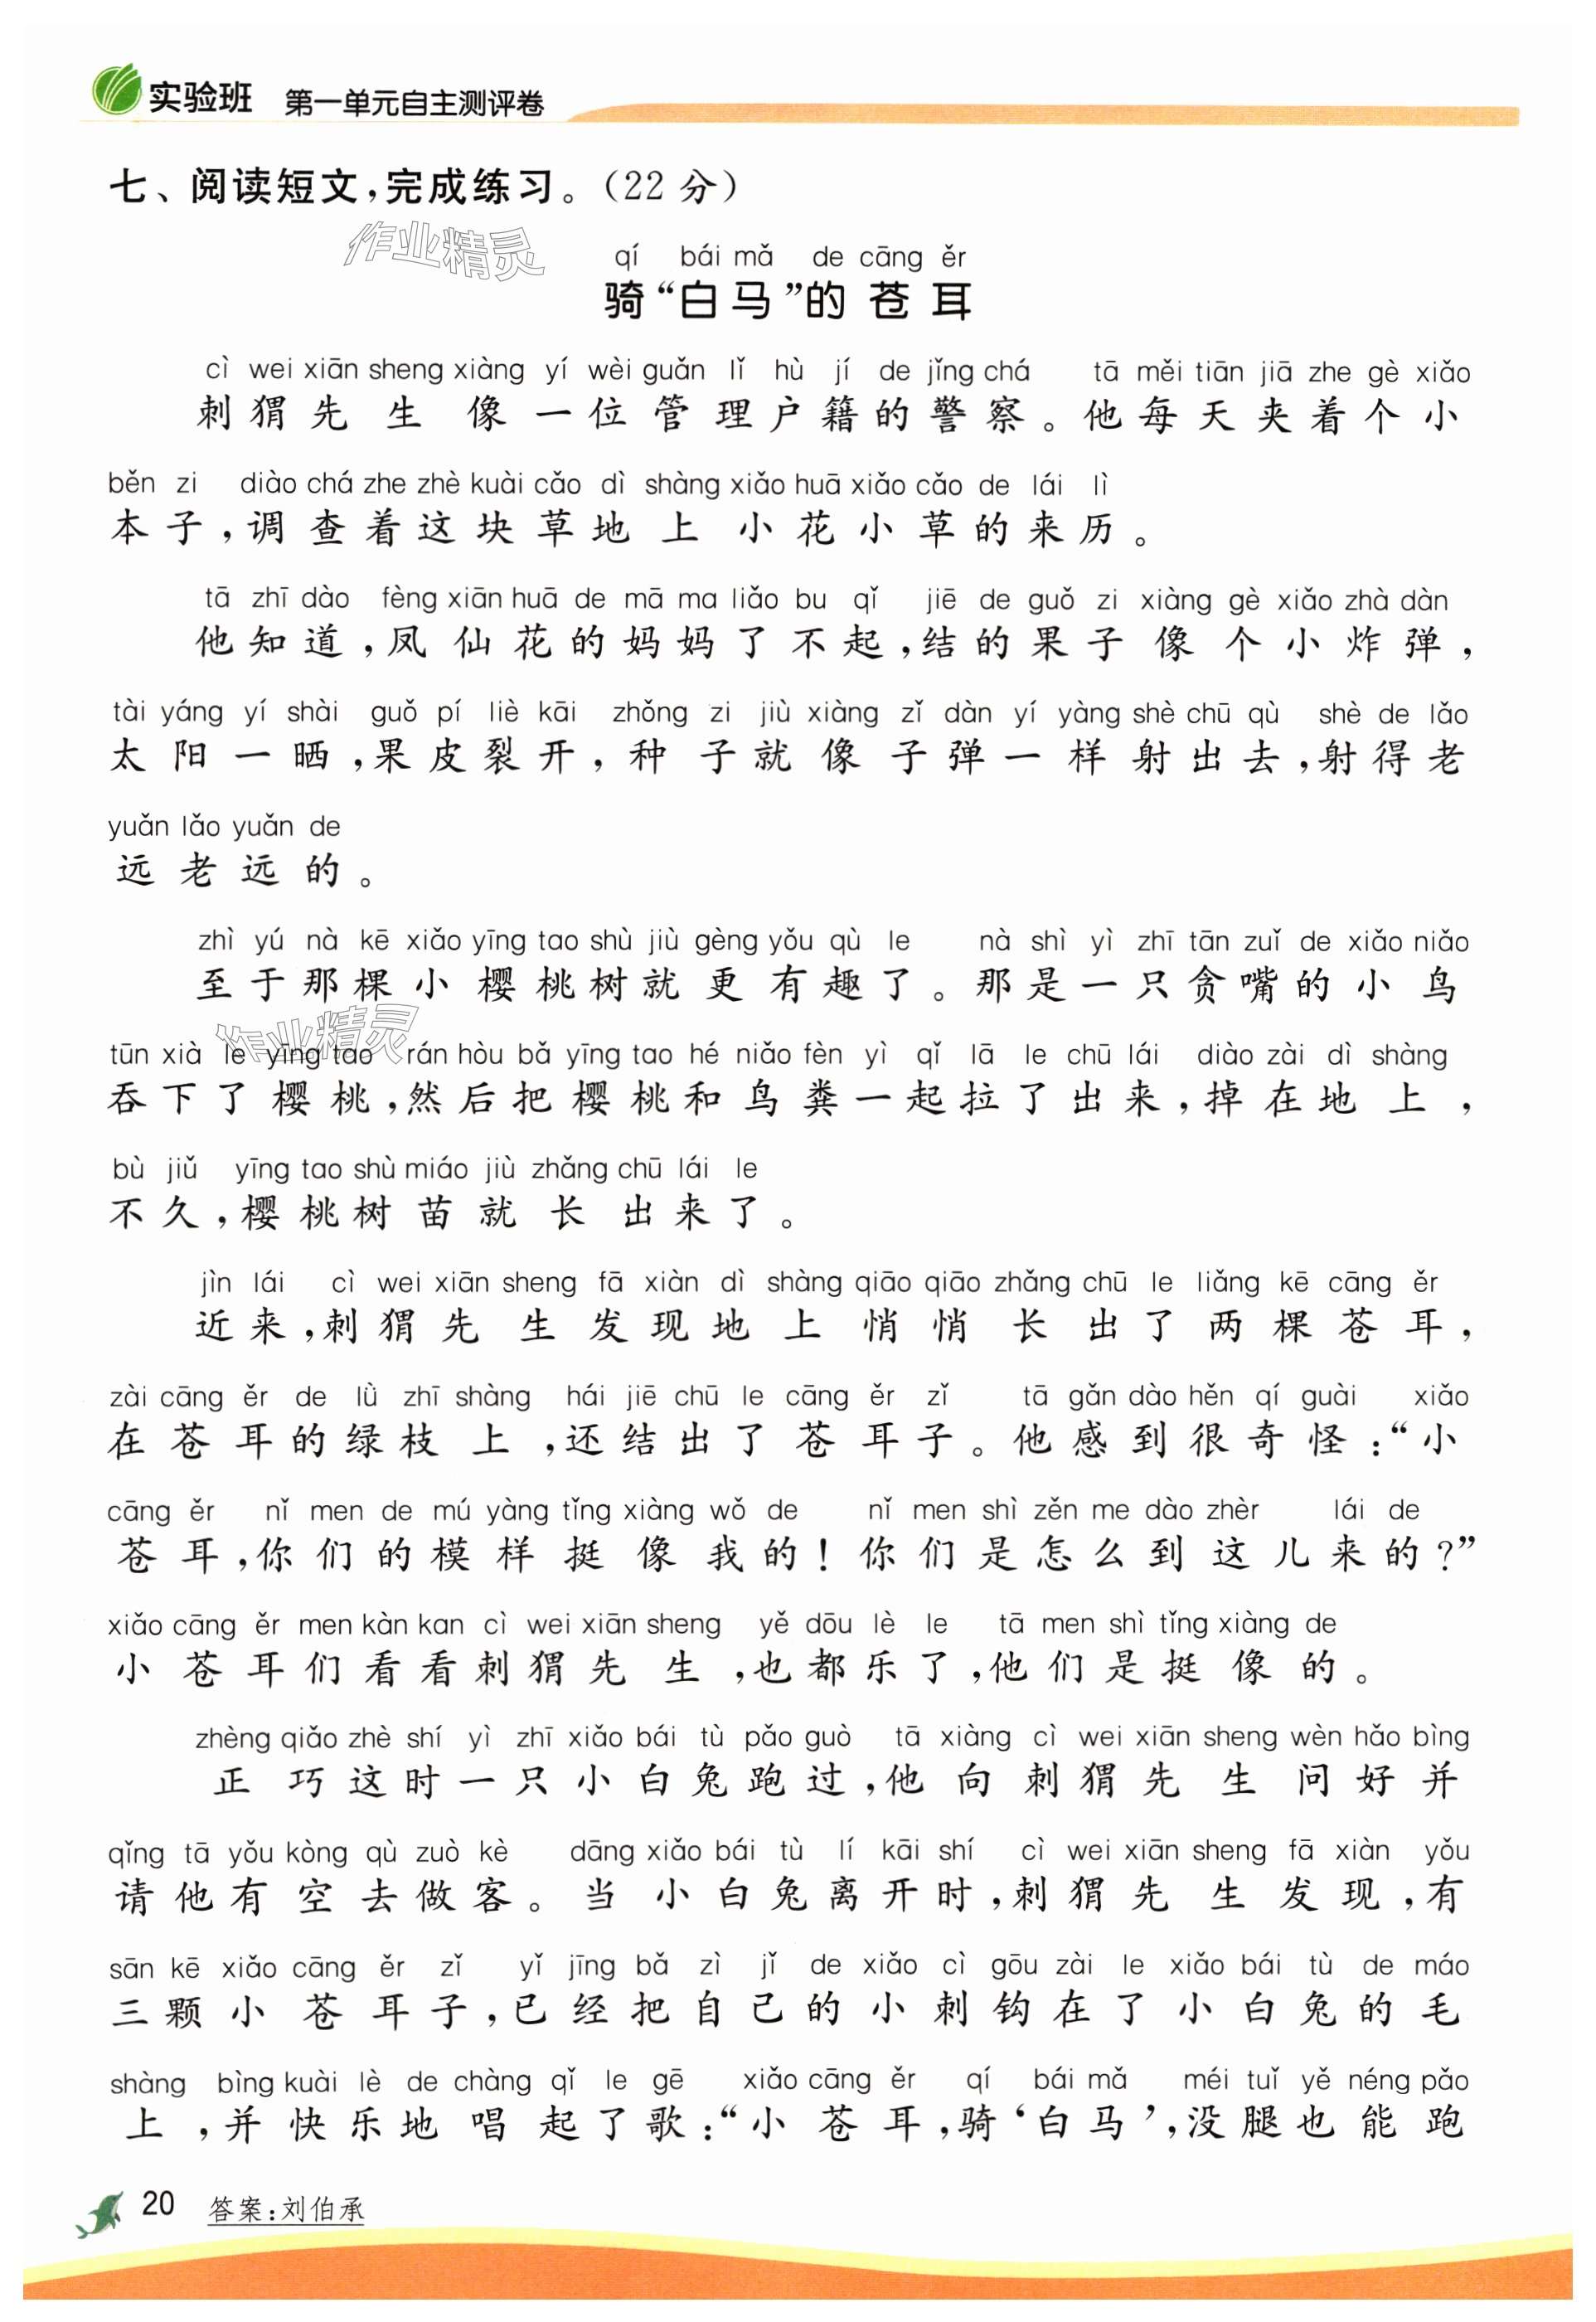 实验班 第一单元自主测评卷
七、阅读短文,完成练习。(22 分)
作业精灵
qí bái mǎ de cāng ěr
骑“白马”的苍耳
cì wei xiān sheng xiàng yí wèi guǎn lǐ hù jí de jǐng chá tā měi tiān jiā zhe gè xiǎo
刺猬先生像一位管理户籍的警察。他每天夹着个小
běn zi diào chá zhe zhè kuài cǎo dì shàng xiǎo huā xiǎo cǎo de lái lì
本子,调查着这块草地上小花小草的来历。
tā zhī dào fèng xiān huā de mā ma liǎo bu qǐ jiē de guǒ zi xiàng gè xiǎo zhà dàn
他知道,凤仙花的妈妈了不起,结的果子像个小炸弹,
tài yáng yí shài guǒ pí liè kāi zhǒng zi jiù xiàng zǐ dàn yí yàng shè chū qù shè de lǎo
太阳一晒,果皮裂开,种子就像子弹一样射出去,射得老
yuǎn lǎo yuǎn de
远老远的。
zhì yú nà kē xiǎo yīng tao shù jiù gèng yǒu qù le nà shì yì zhī tān zuǐ de xiǎo niǎo
至于那棵小樱桃树就更有趣了。那是一只贪嘴的小鸟
作业精灵
tūn xià le yīng tao rán hòu bǎ yīng tao hé niǎo fèn yì qǐ lā le chū lái diào zài dì shàng
吞下了樱桃,然后把樱桃和鸟粪一起拉了出来,掉在地上,
bù jiǔ yīng tao shù miáo jiù zhǎng chū lái le
不久,樱桃树苗就长出来了。
jìn lái cì wei xiān sheng fā xiàn dì shàng qiāo qiāo zhǎng chū le liǎng kē cāng ěr
近来,刺猬先生发现地上悄悄长出了两棵苍耳,
zài cāng ěr de lǜ zhī shàng hái jiē chū le cāng ěr zǐ tā gǎn dào hěn qí guài xiǎo
在苍耳的绿枝上,还结出了苍耳子。他感到很奇怪:“小
cāng ěr nǐ men de mú yàng tǐng xiàng wǒ de nǐ men shì zěn me dào zhèr lái de
苍耳,你们的模样挺像我的!你们是怎么到这儿来的?”
xiǎo cāng ěr men kàn kan cì wei xiān sheng yě dōu lè le tā men shì tǐng xiàng de
小苍耳们看看刺猬先生,也都乐了,他们是挺像的。
zhèng qiǎo zhè shí yì zhī xiǎo bái tù pǎo guò tā xiàng cì wei xiān sheng wèn hǎo bìng
正巧这时一只小白兔跑过,他向刺猬先生问好并
qǐng tā yǒu kòng qù zuò kè dāng xiǎo bái tù lí kāi shí cì wei xiān sheng fā xiàn yǒu
请他有空去做客。当小白兔离开时,刺猬先生发现,有
sān kē xiǎo cāng ěr zǐ yǐ jīng bǎ zì jǐ de xiǎo cì gōu zài le xiǎo bái tù de máo
三颗小苍耳子,已经把自己的小刺钩在了小白兔的毛
shàng bìng kuài lè de chàng qǐ le gē xiǎo cāng ěr qí bái mǎ méi tuǐ yě néng pǎo
上,并快乐地唱起了歌:“小苍耳,骑‘白马’,没腿也能跑
20 答案:刘伯承